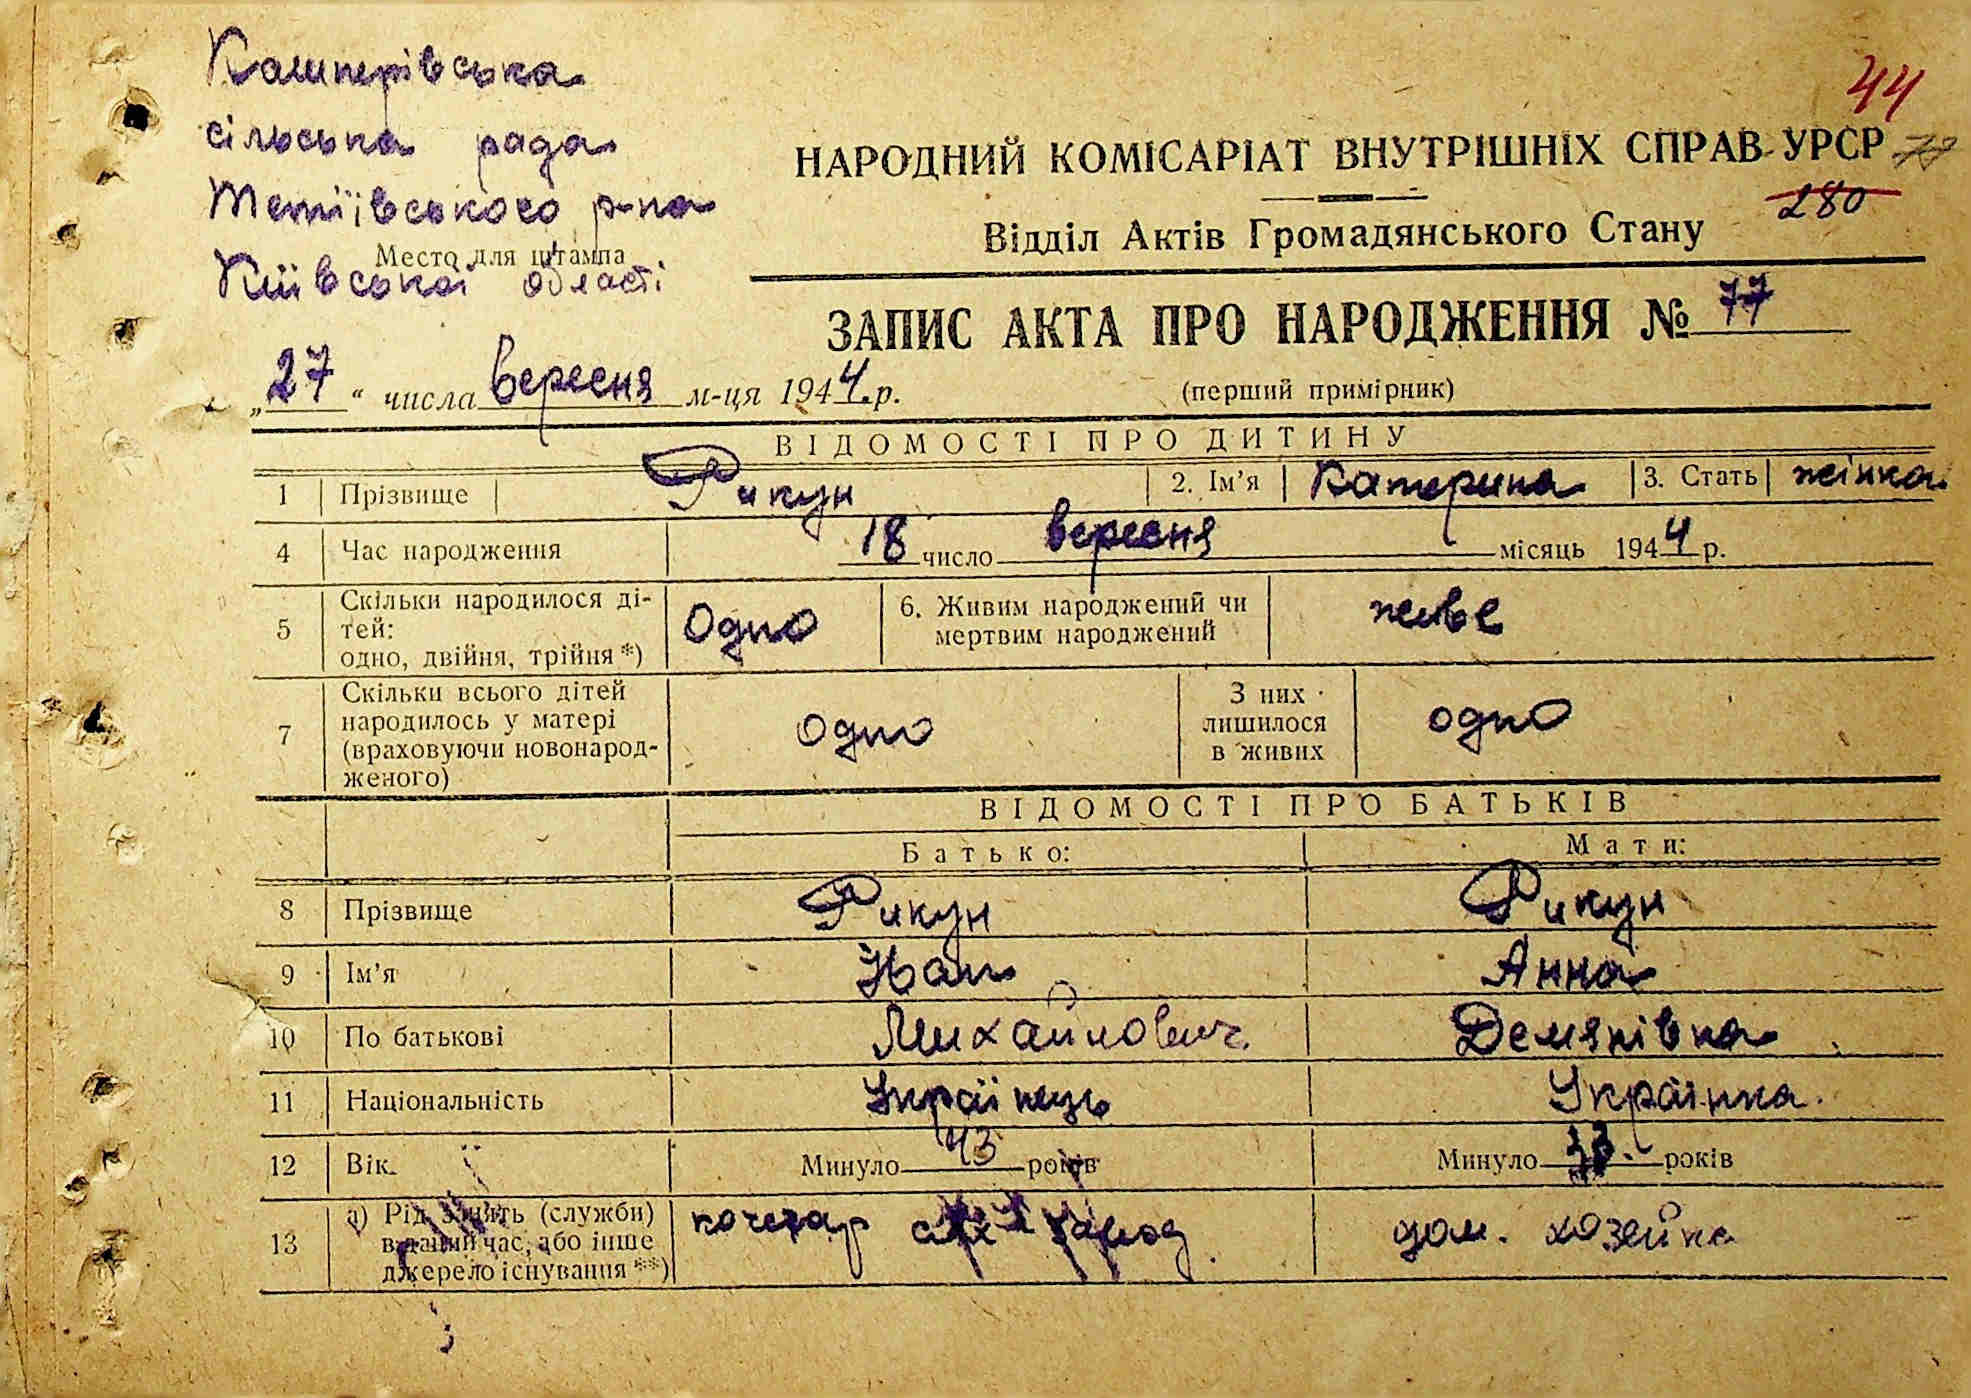 Кашперівська
сільська рада
Тетіївського р-на
Місто для штампа
Київської області
44
НАРОДНИЙ КОМІСАРІАТ ВНУТРІШНІХ СПРАВ УРСР
280
Відділ Актів Громадянського Стану
ЗАПИС АКТА ПРО НАРОДЖЕННЯ № 77
„27“ числа вересня м-ця 1944 р.
(перший примірник)
ВІДОМОСТІ ПРО ДИТИНУ
1 Прізвище Рикун 2. Ім'я Катерина 3. Стать жінка
4 Час народження 18 число вересня місяць 1944 р.
5 Скільки народилося ді-
тей:
одно, двійня, трійня*) Одно 6. Живим народжений чи
мертвим народжений живе
7 Скільки всього дітей
народилось у матері
(враховуючи новонарод-
женого) одно З них
лишилося
в живих одно
ВІДОМОСТІ ПРО БАТЬКІВ
Батько: Мати:
8 Прізвище Рикун Рикун
9 Ім'я Іван Анна
10 По батькові Михайлович Демянівна
11 Національність Українець Українка.
12 Вік. Минуло 43 років Минуло років
13 а) Рід занять (служби)
в даний час, або інше
джерело існування**) кочегар завод. дом. хозейка